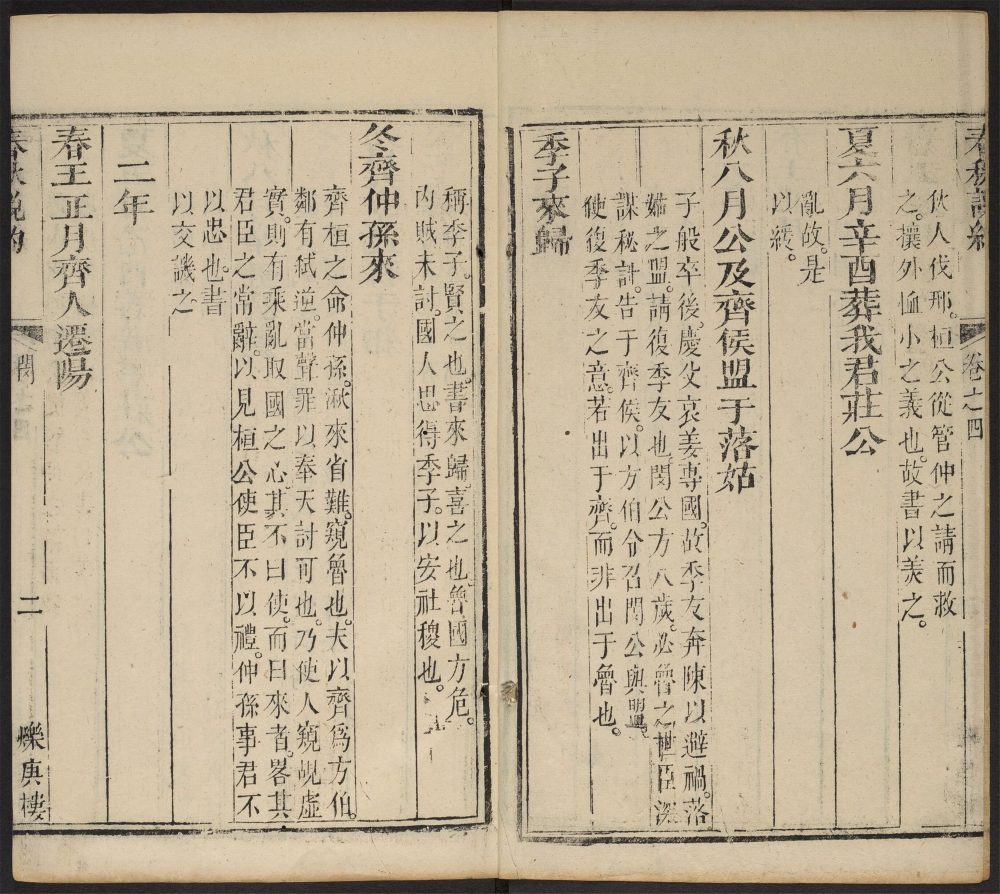 卷之四
狄人伐邢。桓公從管仲之請而救
之。攘外恤小之義也。故書以美之。
夏六月辛酉葬我君莊公
亂故。是
以緩。
秋八月公及齊侯盟于落姑
子般卒後。慶父哀姜專國。故季友奔陳以避禍。落
姑之盟。請復季友也。閔公方八歲。必魯之世臣深
謀秘計。告于齊侯。以方伯令召閔公與盟。
使復季友之意。若出于齊。而非出于魯也。
季子來歸
稱季子。賢之也。書來歸。喜之也。魯國方危。
內賊未討。國人思得季子。以安社稷也。
冬齊仲孫來
齊桓之命仲孫。湫來省難。窺魯也。夫以齊爲方伯。
鄰有弒逆。當聲罪以奉天討可也。乃使人窺覘虛
實。則有乘亂取國之心。其不曰使。而曰來者。畧其
君臣之常辭。以見桓公使臣不以禮。仲孫事君不
以忠也。書
以交譏之
二年
春王正月齊人遷陽
閔
二
爍庚樓